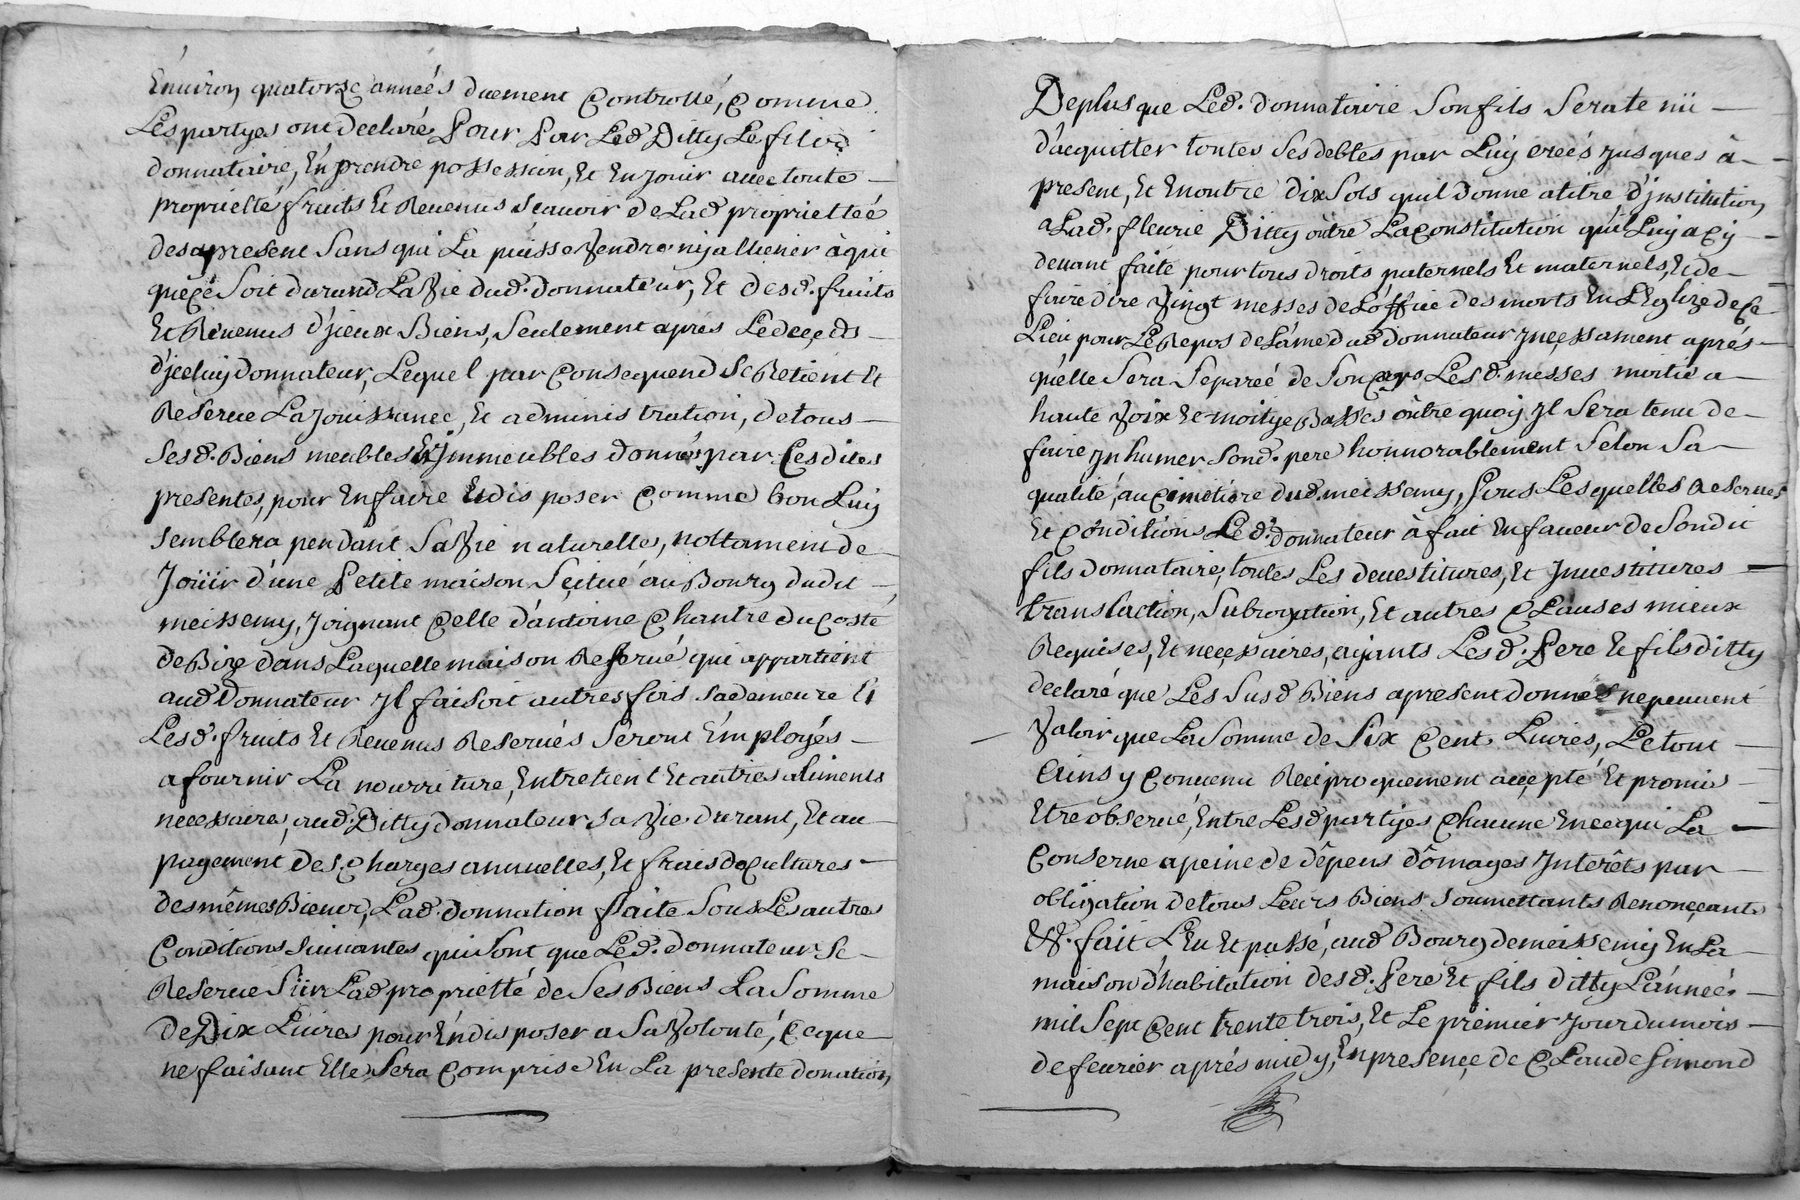 Environ quatorze années duement Controllé, Comme
Les partyes ont declaré, Pour Par Led. Ditty Le fils
donnataire, En prendre possession, Et En Jouir avec toute
proprietté fruits Et Revenus scavoir de Lad. proprietteé
des apresent sans qui La puisse Vendre ny alliener à qui
que Ce soit durand La Vie dud. donnateur, Et desd. fruits
Et Revenus d'jieux Biens, seulement apres Le deceds
d'jceluy donnateur, Lequel par Consequend se Retient Et
Reserve La Jouissance, Et administration, de tous
sesd. Biens meubles Et Jmmeubles donnés par Ces dites
presentes, pour En faire Et disposer Comme bon Luy
semblera pendant sa Vie naturelles, nottament de
Joüir d'une Petite maison sçitué au Bourg dudit
meissemy, Joignant Celle d'antoine Chantre du Costé
de Bize dans Laquelle maison Reservé qui appartient
aud Donnateur Jl faisoit autres fois sa demeure Et
Lesd. fruits Et Revenus Reservés seront Employés
a fournir La nourriture, Entretient Et autres aliments
necessaires, aud. Ditty donnateur sa Vie durant, Et au
payement des Charges annuelles, Et frais de Cultures
des mêmes Biens, Lad. donnation faite sous Les autres
Conditions suivantes qui sont que Led. donnateur se
Reserve sur Lad proprietté de ses Biens La somme
de Dix Livres pour En disposer a sa Volonté, Ce que
ne faisant Elle sera Comprise En La presente donation,
De plus que Led. donnataire son fils sera tenü
d'acquitter toutes ses debtes par Luy creés Jusques à
present, Et En outre dix sols quil donne a titre d'jnstitution
a Lad. fleurie Ditty oûtre La Constitution quil Luy a Cy
devant faite pour tous droits paternels Et maternels, Et de
faire dire Vingt messes de L'office des morts En L'Eglize de Ce
Lieu pour Le Repos de L'ame dud donnateur Jncessament aprés
qu'elle sera separeé de son Corps Lesd. messes moitié a
haute Voix Et moitye Basses oûtre quoy Jl sera tenu de
faire Jnhumer sond. pere honnorablement selon sa
qualité, au Cimetiere dud. meissemy, sous Lesquelles Reserves
Et Conditions Led. donnateur à fait En faveur de sondit
fils donnataire, toutes Les devestitures, Et Jnvestitures
translaction, subrogation, Et autres Clauses mieux
Requises, Et necessaires, ayants Lesd. Pere Et fils ditty
declaré que Les susd Biens a present donnés ne peuvent
Valoir que La somme de six Cent Livres, Le tout
Ainsy Convenu Reciproquement accepté Et promis
Etre observé, Entre Lesd partyes Chacune En ce qui La
Conserne a peine de dêpens dômages Jnterêts par
obligation de tous Leurs Biens soumettants Renonçants
&. fait Leu Et passé, aud Bourg de meissemy En La
maison d'habitation desd. Pere Et fils ditty L'année
mil sept Cent trente trois, Et Le premier Jour du mois
de fevrier aprés midy, En presence de Claude simond